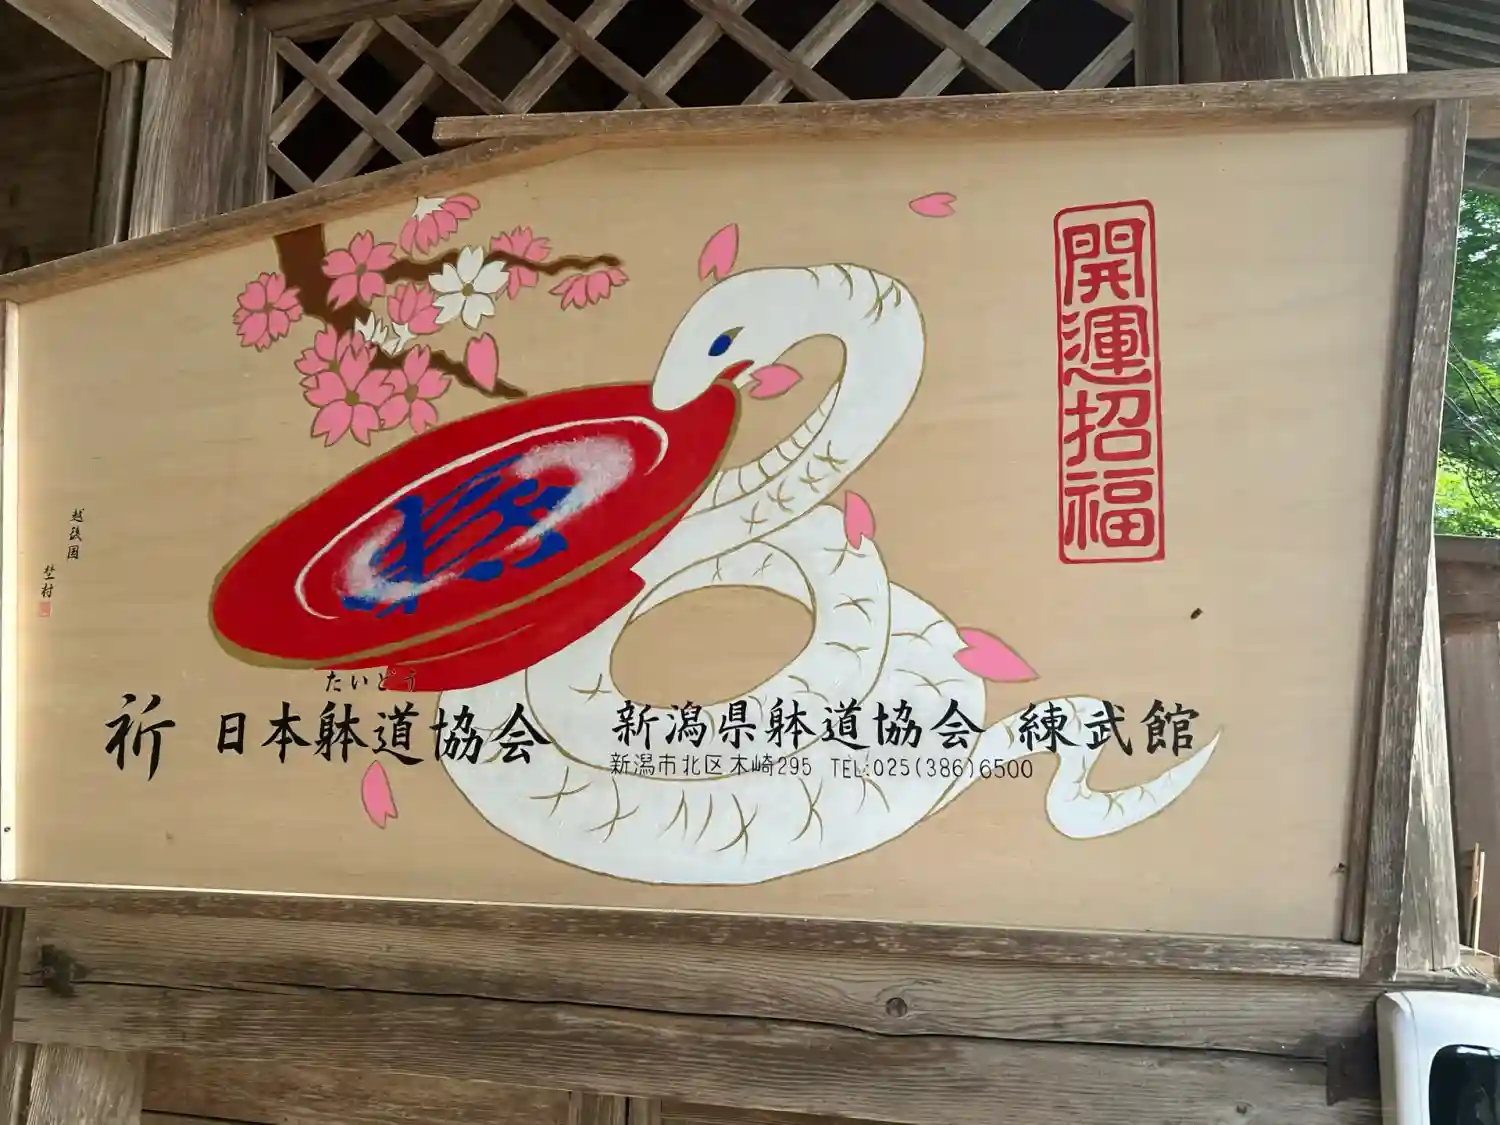 開運招福
たいどう
祈 日本躰道協会 新潟県躰道協会 練武館
新潟市北区木崎295 TEL:025(386)6500
越後国